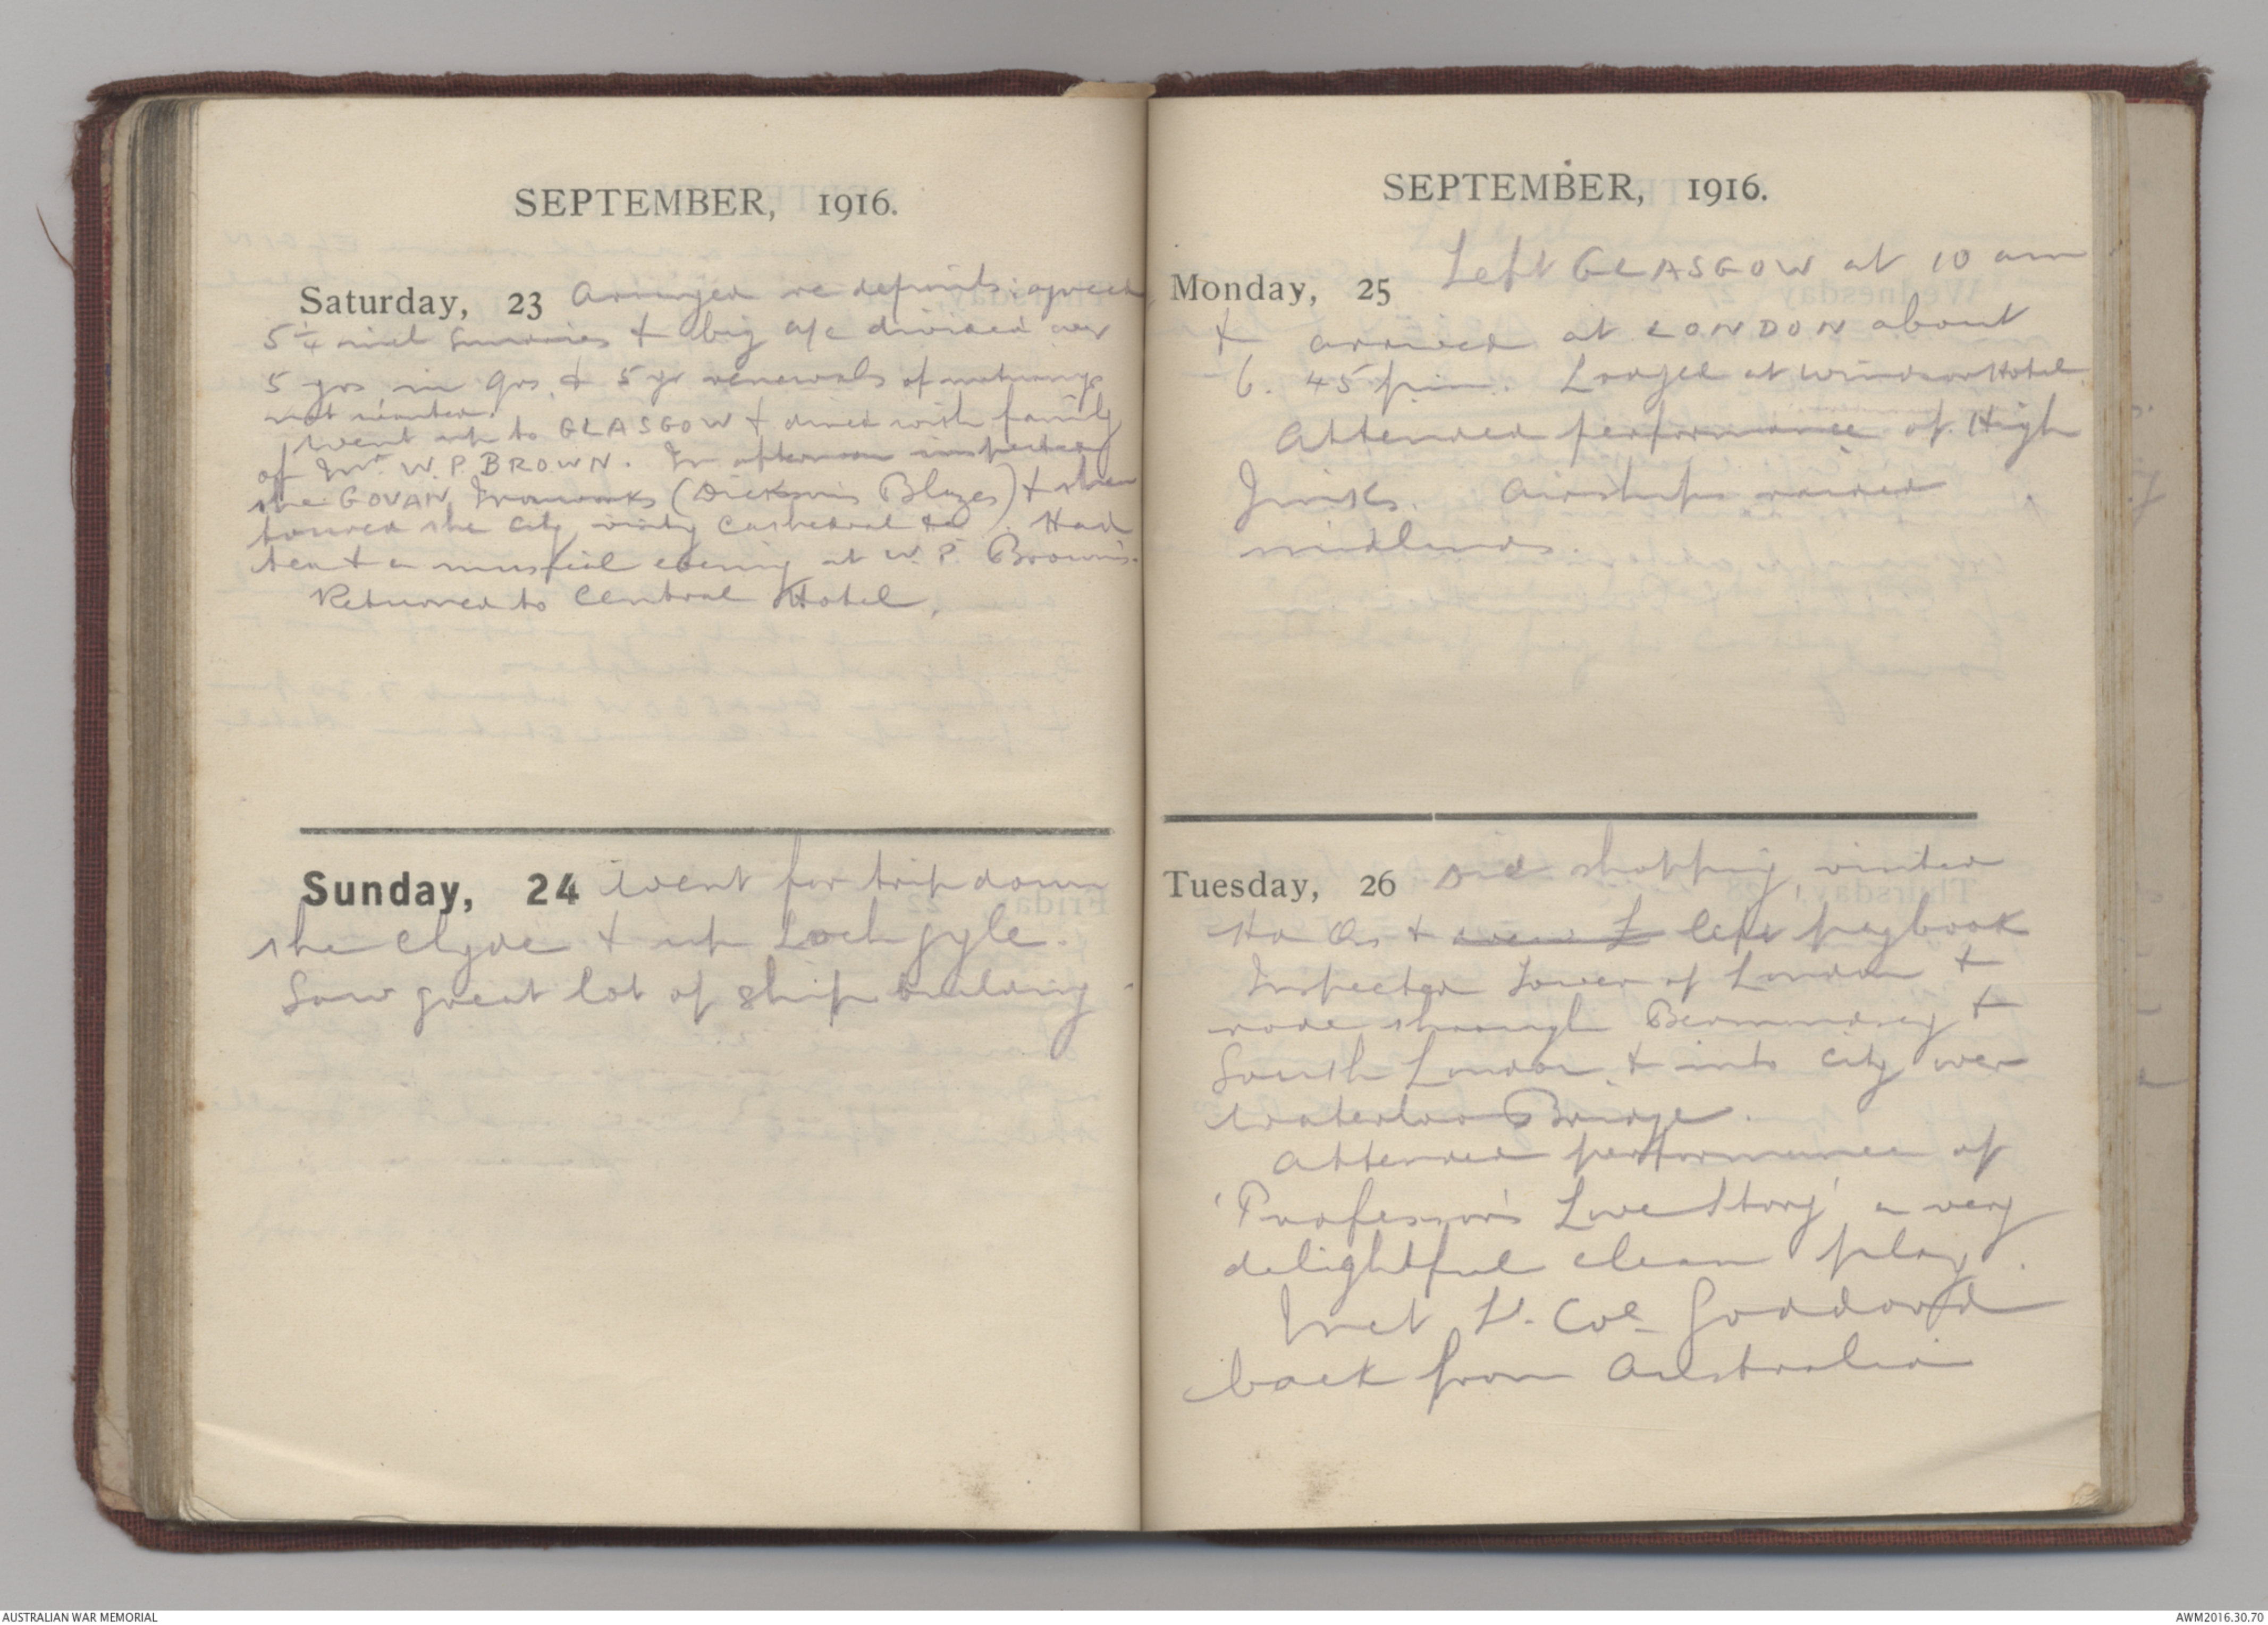 SEPTEMBER, 1916.
Saturday, 23 Arranged re deposits: agreed
5 1/4 incl sundries & big a/c divided over
5 yrs in qrs. & 5 yr renewals of maturings
not wanted.
Went up to GLASGOW & dined with family
of Mr. W.P. BROWN. In afternoon inspected
the GOVAN Ironworks (Dickson's Blazes) & then
toured the city, visitg Cathedral &c. Had
tea & a musical evening at W. P. Brown's.
Returned to Central Hotel.
Sunday, 24 Went for trip down
the Clyde & up Loch gyle.
Saw great lot of ship building
SEPTEMBER, 1916.
Monday, 25 Left GLASGOW at 10 am
& arrived at LONDON about
6. 45 pm. Lodged at Windsor Hotel.
Attended performance of High
Jinks. Airships raided
midlands.
Tuesday, 26 Did shopping, visited
Hd Qrs & left paybook
Inspected Tower of London &
rode through Bermondsey &
South London & into city over
Waterloo Bridge.
Attended performance of
'Professor's Love Story' a very
delightful clean play.
Met Lt. Col. Goddard
back from Australia
AUSTRALIAN WAR MEMORIAL
AWM2016.30.70